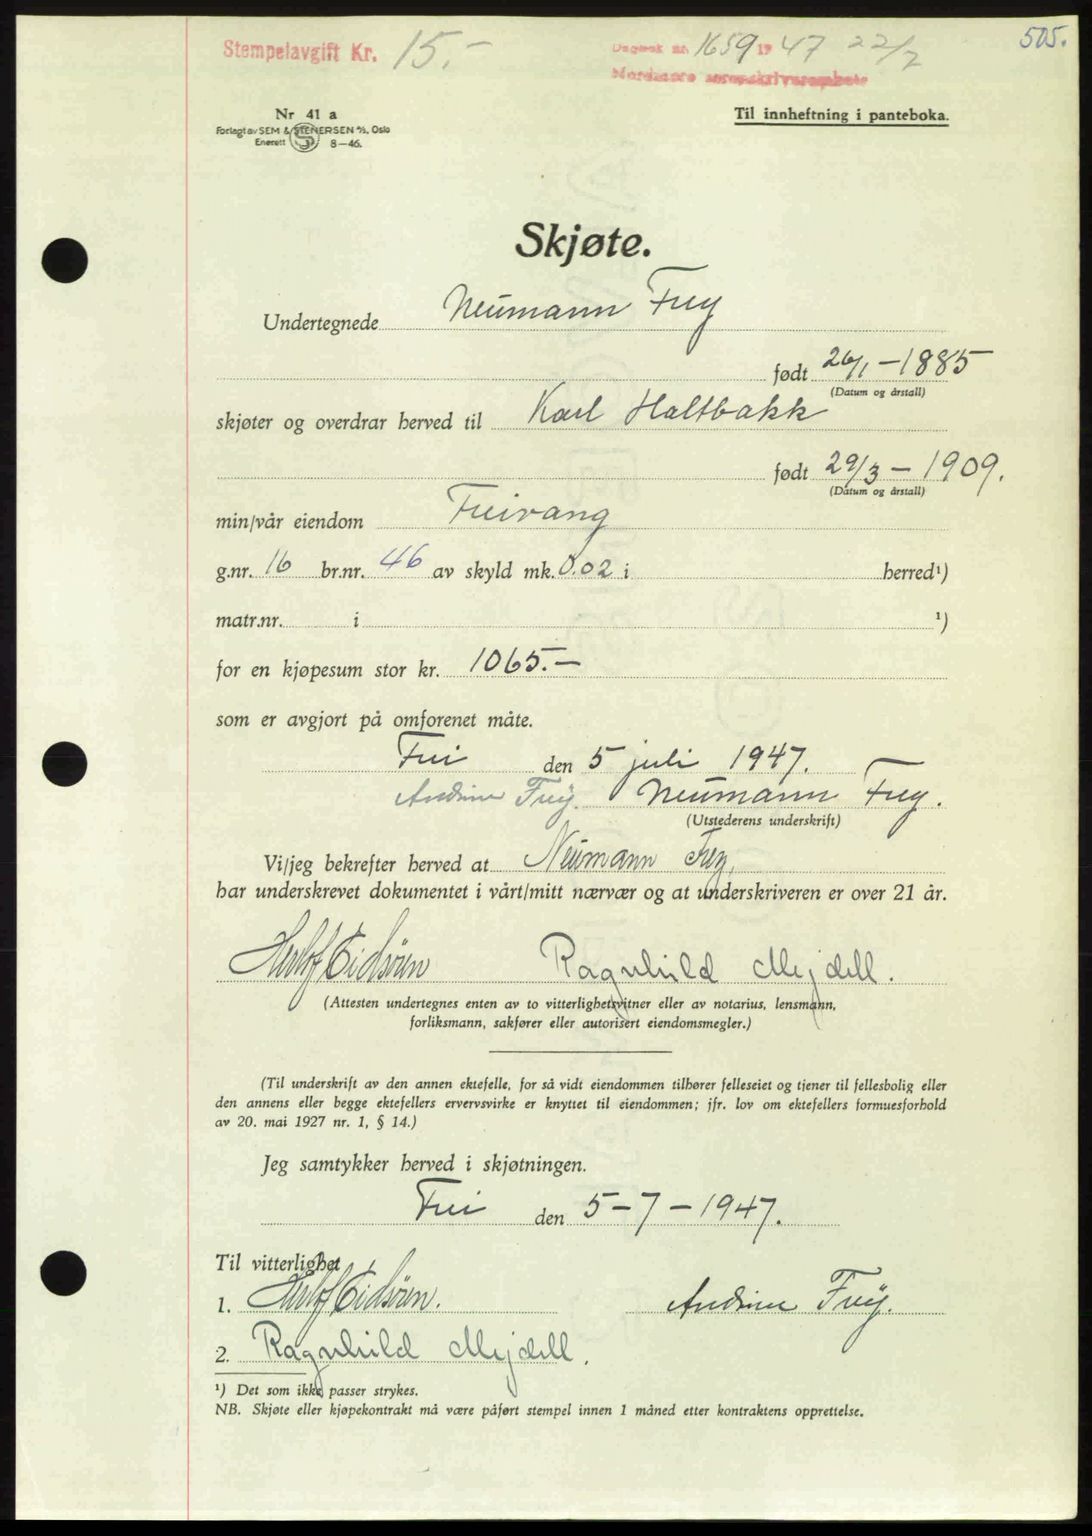 505.
Stempelavgift Kr. 15.-
Dagbok nr. 1659 19 47 22/7
Nordmøre sorenskriverembete
Nr 41 a
Forlagt av SEM & STENERSEN A/S, Oslo
Enerett 8-46.
Til innheftning i panteboka.
Skjøte.
Undertegnede Neumann Frey
født 26/1 - 1885
(Datum og årstall)
skjøter og overdrar herved til Karl Haltbakk
født 29/3 - 1909.
(Datum og årstall)
min/vår eiendom Freivang
g.nr. 16 br.nr. 46 av skyld mk. 0.02 i herred¹)
matr.nr. i ¹)
for en kjøpesum stor kr. 1065.-
som er avgjort på omforenet måte.
Frei den 5 juli 1947.
Andrine Frey. Neumann Frey.
(Utstederens underskrift)
Vi/jeg bekrefter herved at Neumann Frey,
har underskrevet dokumentet i vårt/mitt nærvær og at underskriveren er over 21 år.
Eidsören Ragnhild Mejdell.
(Attesten undertegnes enten av to vitterlighetsvitner eller av notarius, lensmann,
forliksmann, sakfører eller autorisert eiendomsmegler.)
(Til underskrift av den annen ektefelle, for så vidt eiendommen tilhører felleseiet og tjener til fellesbolig eller
den annens eller begge ektefellers ervervsvirke er knyttet til eiendommen; jfr. lov om ektefellers formuesforhold
av 20. mai 1927 nr. 1, § 14.)
Jeg samtykker herved i skjøtningen.
Frei den 5-7-1947.
Til vitterlighet
1. Eidsören. Andrine Frey.
2. Ragnhild Mejdell.
¹) Det som ikke passer strykes.
NB. Skjøte eller kjøpekontrakt må være påført stempel innen 1 måned etter kontraktens opprettelse.